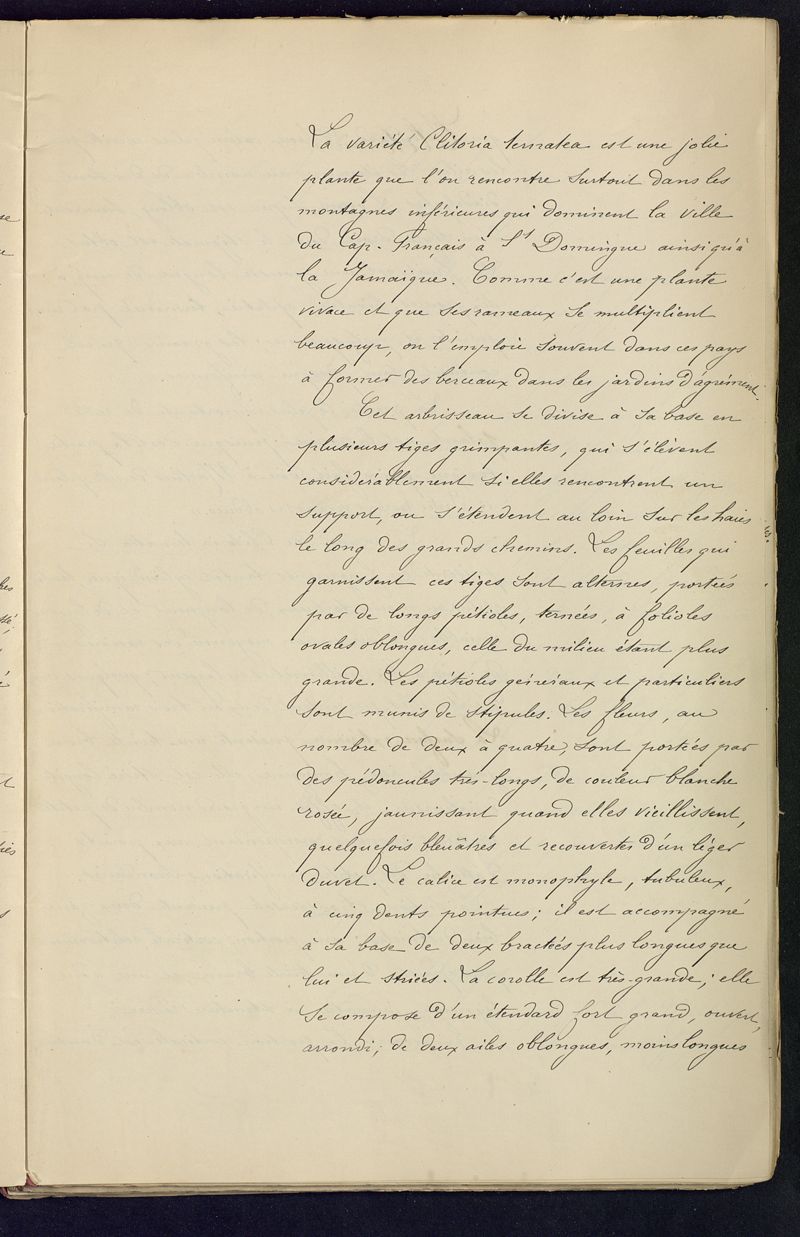 La variété Clitoria ternatea est une jolie
plante que l'on rencontre surtout dans les
montagnes inférieures qui dominent la ville
du Cap-Français à St Domingue ainsi qu'à
la Jamaïque. Comme c'est une plante
vivace et que ses rameaux se multiplient
beaucoup, on l'emploie souvent dans ces pays
à former des berceaux dans les jardins d'agrément.
Cet arbrisseau se divise à sa base en
plusieurs tiges grimpantes, qui s'élèvent
considérablement si elles rencontrent un
support, ou s'étendent au loin sur les haies
le long des grands chemins. Les feuilles qui
garnissent ces tiges sont alternes, portées
par de longs pétioles, ternées, à folioles
ovales oblongues, celle du milieu étant plus
grande. Les pétioles généraux et particuliers
sont munis de stipules. Les fleurs, au
nombre de deux à quatre, sont portées par
des pédoncules très-longs, de couleur blanche
rosée, jaunissant quand elles vieillissent,
quelquefois bleuâtres et recouvertes d'un léger
duvet. Le calice est monophyle, tubuleux,
à cinq dents pointues; il est accompagné
à sa base de deux bractées plus longues que
lui et striées. La corolle est très-grande; elle
se compose d'un étendard fort grand, ouvert,
arrondi; de deux ailes oblongues, moins longues